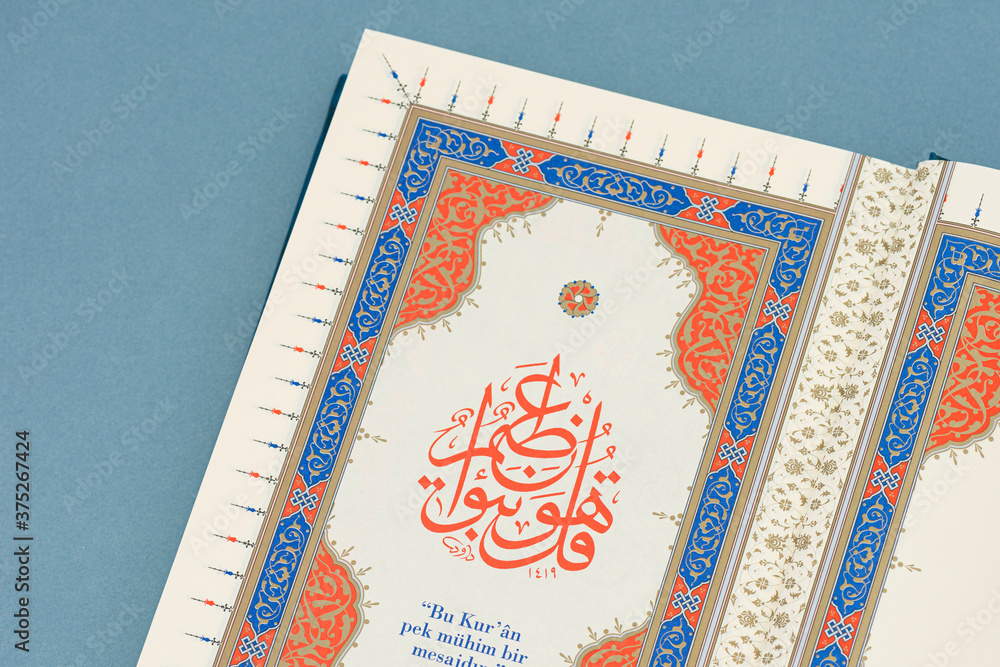 قل هو نبؤا عظيم
داود
١٤١٩
“Bu Kur’ân
pek mühim bir
mesajdır.”
Adobe Stock | #375267424